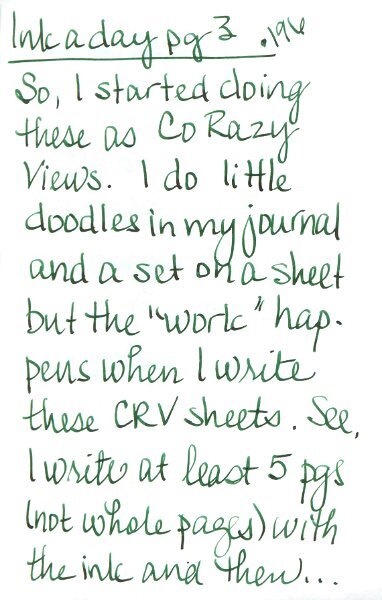 Ink a day pg 3 .196
So, I started doing
these as CoRazy
Views. I do little
doodles in my journal
and a set on a sheet
but the "work" hap-
pens when I write
these CRV sheets. See,
I write at least 5 pgs
(not whole pages) with
the ink and then...